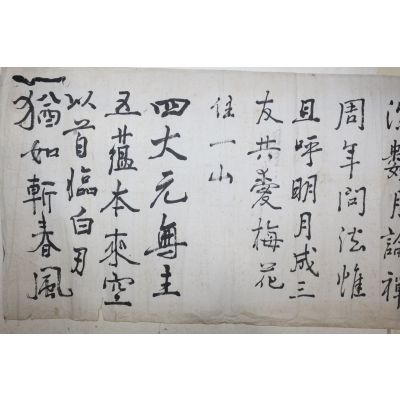 數月論禪
周年問法惟
且呼明月成三
友共愛梅花
住一山
四大元無主
五蘊本來空
以首臨白刃
猶如斬春風